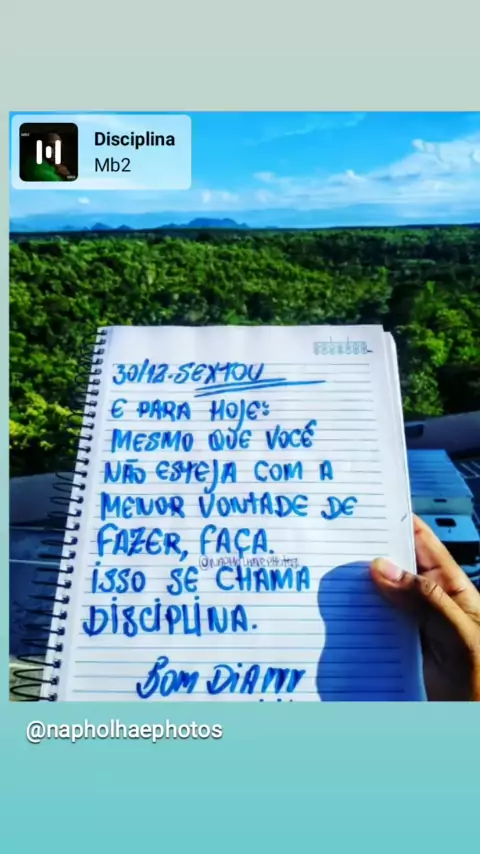 Disciplina
Mb2
30/12-SEXTOU
E PARA HOJE:
MESMO QUE VOCÊ
NÃO ESTEJA COM A
MENOR VONTADE DE
FAZER, FAÇA.
ISSO SE CHAMA
DISCIPLINA.
BOM DIA
@napholhaephotos